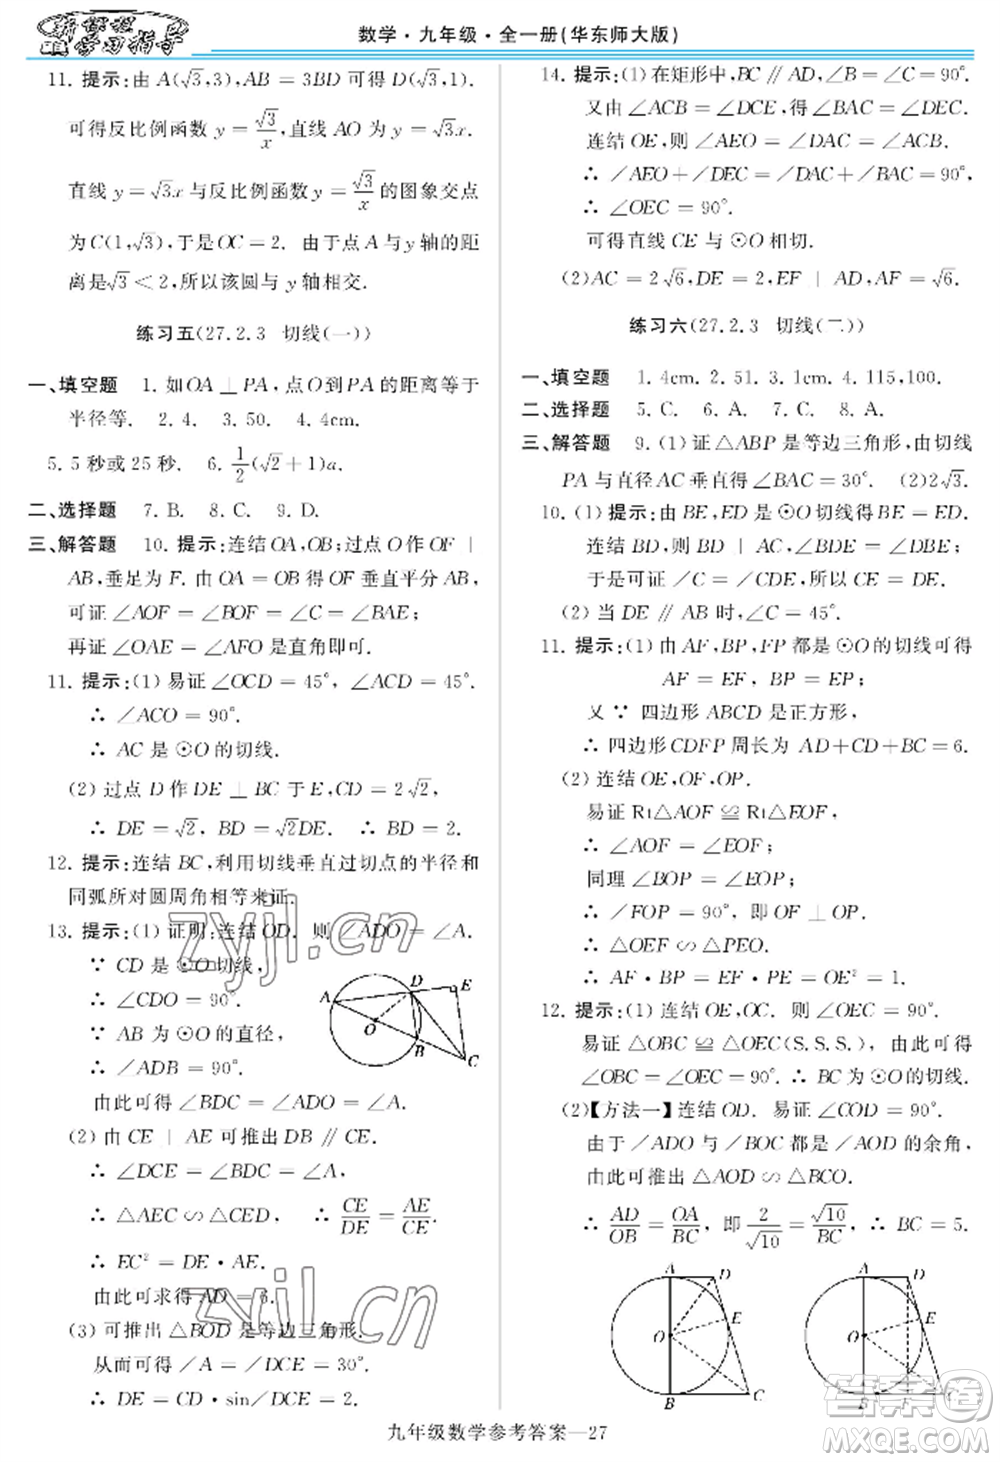 新课程
学习指导
数学·九年级·全一册(华东师大版)
11. 提示:由 A(√3,3),AB = 3BD 可得 D(√3,1).
可得反比例函数 y = √3/x,直线 AO 为 y = √3x.
直线 y = √3x 与反比例函数 y = √3/x 的图象交点
为 C(1,√3),于是 OC = 2. 由于点 A 与 y 轴的距
离是√3 < 2,所以该圆与 y 轴相交.
练习五(27.2.3 切线(一))
一、填空题 1. 如 OA ⊥ PA,点 O 到 PA 的距离等于
半径等. 2. 4. 3. 50. 4. 4cm.
5. 5 秒或 25 秒. 6. 1/2(√2+1)a.
二、选择题 7. B. 8. C. 9. D.
三、解答题 10. 提示:连结 OA,OB;过点 O 作 OF ⊥
AB,垂足为 F. 由 OA = OB 得 OF 垂直平分 AB,
可证 ∠AOF = ∠BOF = ∠C = ∠BAE;
再证 ∠OAE = ∠AFO 是直角即可.
11. 提示:(1) 易证 ∠OCD = 45°, ∠ACD = 45°.
∴ ∠ACO = 90°.
∴ AC 是 ⊙O 的切线.
(2) 过点 D 作 DE ⊥ BC 于 E,CD = 2√2,
∴ DE = √2, BD = √2DE. ∴ BD = 2.
12. 提示:连结 BC,利用切线垂直过切点的半径和
同弧所对圆周角相等来证.
13. 提示:(1) 证明:连结 OD. 则 ∠ADO = ∠A.
∵ CD 是 ⊙O 切线,
∴ ∠CDO = 90°.
∵ AB 为 ⊙O 的直径,
∴ ∠ADB = 90°.
由此可得 ∠BDC = ∠ADO = ∠A.
A D E O B C
(2) 由 CE ⊥ AE 可推出 DB ∥ CE.
∴ ∠DCE = ∠BDC = ∠A.
∴ △AEC ∽ △CED. ∴ CE/DE = AE/CE.
∴ EC² = DE · AE.
由此可求得 AD = 6.
(3) 可推出 △BOD 是等边三角形.
从而可得 ∠A = ∠DCE = 30°.
∴ DE = CD · sin∠DCE = 2.
14. 提示:(1) 在矩形中,BC ∥ AD,∠B = ∠C = 90°.
又由 ∠ACB = ∠DCE,得 ∠BAC = ∠DEC.
连结 OE,则 ∠AEO = ∠DAC = ∠ACB.
∴ ∠AEO + ∠DEC = ∠DAC + ∠BAC = 90°.
∴ ∠OEC = 90°.
可得直线 CE 与 ⊙O 相切.
(2)AC = 2√6,DE = 2,EF ⊥ AD,AF = √6.
练习六(27.2.3 切线(二))
一、填空题 1. 4cm. 2. 51. 3. 1cm. 4. 115,100.
二、选择题 5. C. 6. A. 7. C. 8. A.
三、解答题 9. (1) 证 △ABP 是等边三角形,由切线
PA 与直径 AC 垂直得 ∠BAC = 30°. (2)2√3.
10. (1) 提示:由 BE,ED 是 ⊙O 切线得 BE = ED.
连结 BD,则 BD ⊥ AC,∠BDE = ∠DBE;
于是可证 ∠C = ∠CDE,所以 CE = DE.
(2) 当 DE ∥ AB 时,∠C = 45°.
11. 提示:(1) 由 AF,BP,FP 都是 ⊙O 的切线可得
AF = EF, BP = EP;
又 ∵ 四边形 ABCD 是正方形,
∴ 四边形 CDFP 周长为 AD+CD+BC = 6.
(2) 连结 OE,OF,OP.
易证 Rt△AOF ≌ Rt△EOF,
∴ ∠AOF = ∠EOF;
同理 ∠BOP = ∠EOP;
∴ ∠FOP = 90°, 即 OF ⊥ OP.
∴ △OEF ∽ △PEO.
∴ AF · BP = EF · PE = OE² = 1.
12. 提示:(1) 连结 OE,OC. 则 ∠OEC = 90°.
易证 △OBC ≌ △OEC(S.S.S.), 由此可得
∠OBC = ∠OEC = 90°. ∴ BC 为 ⊙O 的切线.
(2)【方法一】连结 OD. 易证 ∠COD = 90°,
由于 ∠ADO 与 ∠BOC 都是 ∠AOD 的余角,
由此可推出 △AOD ∽ △BCO.
∴ AD/OB = OA/BC, 即 2/√10 = √10/BC, ∴ BC = 5.
A D E O B C
A D E O F B C
zyjl.cn
zyjl.cn
答案圈
MXQE.COM
九年级数学参考答案—27